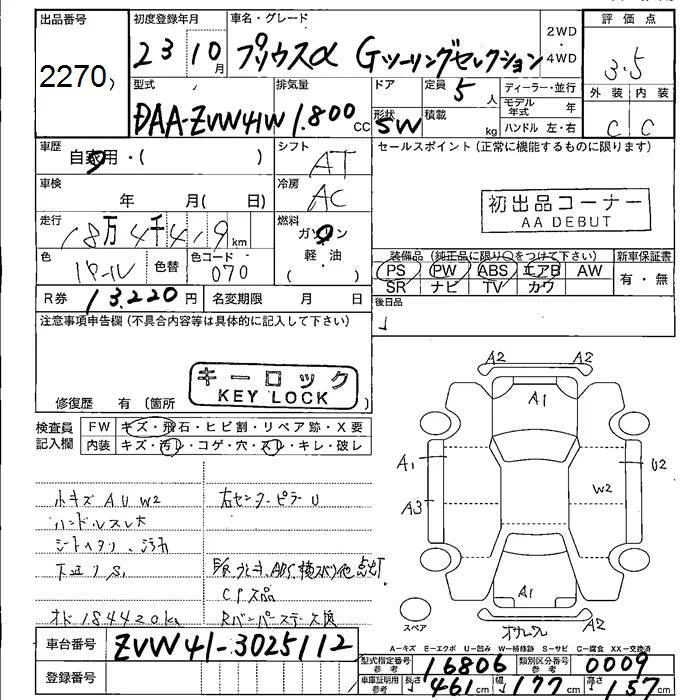 出品番号
2270
初度登録年月
23 10月
車名・グレード
プリウスα Gツーリングセレクション
2WD
・
4WD
評価点
3.5
外装 内装
C C
型式
DAA-ZVW41W
排気量
1.800 cc
ドア
形状
SW
定員
5人
積載
kg
ディーラー・並行
モデル年式 年
ハンドル 左・右
車歴
自家用・( )
シフト
AT
車検
年 月( 日)
冷房
AC
走行
18万4千419km
燃料
ガソリン
軽・油
( )
色
パール
色替
色コード
070
R券 13.220円
名変期限 月 日
セールスポイント(正常に機能するものに限ります)
初出品コーナー
AA DEBUT
装備品(純正品に限り○をつけて下さい)
PS PW ABS エアB AW
SR ナビ TV カワ
新車保証書
有・無
後日品
注意事項申告欄(不具合内容等は具体的に記入して下さい)
キーロック
KEY LOCK
修復歴 有(箇所
検査員
記入欄
FW キズ・飛石・ヒビ割・リペア跡・X要
内装 キズ・汚レ・コゲ・穴・スレ・キレ・破レ
小キズ A U W2
右センターピラーU
ハンドルスレ大
シートヘタリ、汚れ
下廻りS1
ABS、横スベリ他 点灯
CP欠品
オド184420km
A2 A2
A1
A1
A3
U2
W2
A1
A2
スペア
車台番号 ZVW41-3025112
登録番号
A−キズ E−エクボ U−凹み W−補修跡 S−サビ C−腐食 XX−交換済
型式指定番号
参考
16806
類別区分番号
参考
0009
車庫証明用
参考
長さ 461cm 幅 177cm 高さ 157cm